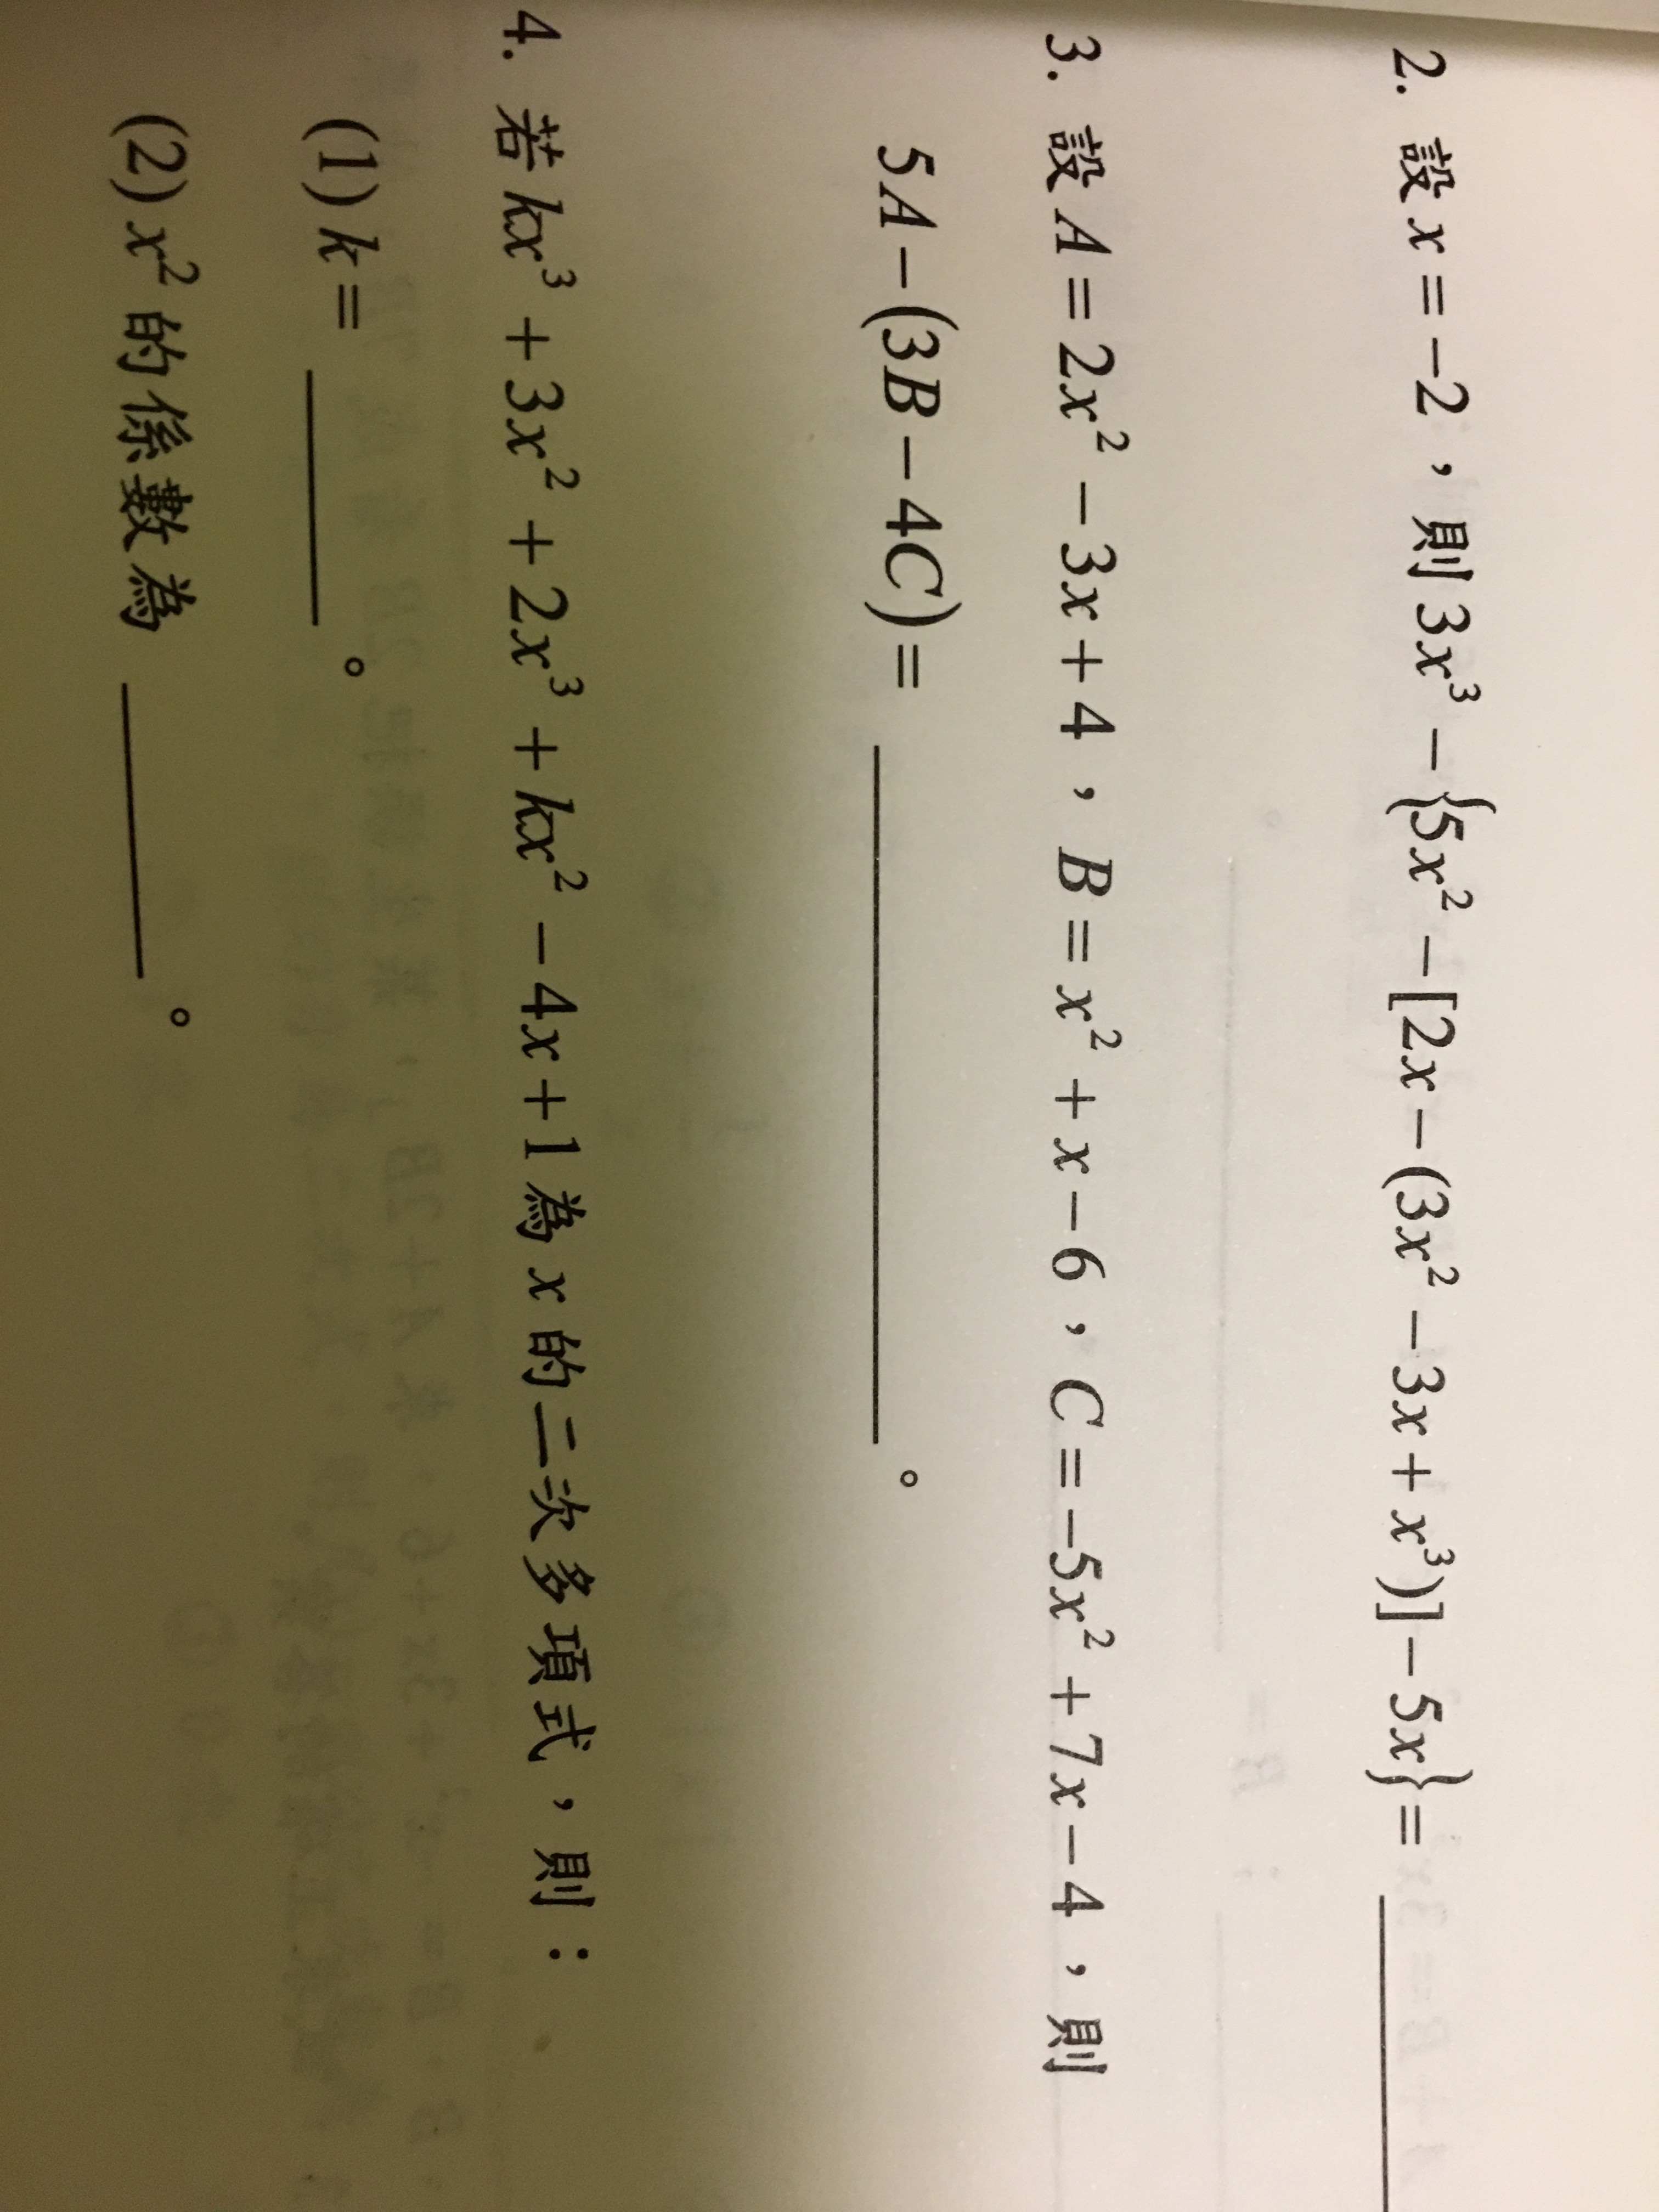 2. 設 x = −2，則 3x³ − {5x² − [2x − (3x² − 3x + x³)] − 5x} = ＿＿＿
3. 設 A = 2x² − 3x + 4，B = x² + x − 6，C = −5x² + 7x − 4，則
5A − (3B − 4C) = ＿＿＿。
4. 若 kx³ + 3x² + 2x³ + kx² − 4x + 1 為 x 的二次多項式，則：
(1) k = ＿＿＿。
(2) x² 的係數為 ＿＿＿。